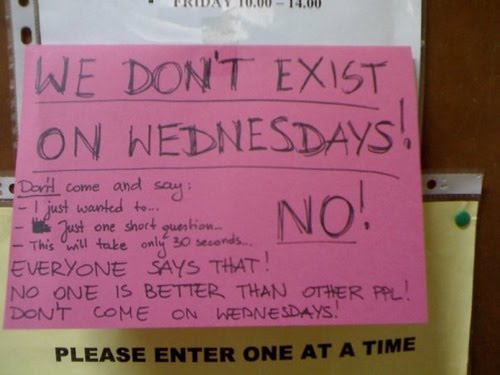 FRIDAY 10.00 – 14.00
WE DON'T EXIST
ON WEDNESDAYS!
Don't come and say:
- I just wanted to...
- Just one short question...
- This will take only 30 seconds...
NO!
EVERYONE SAYS THAT!
NO ONE IS BETTER THAN OTHER PPL!
DON'T COME ON WEDNESDAYS!
PLEASE ENTER ONE AT A TIME